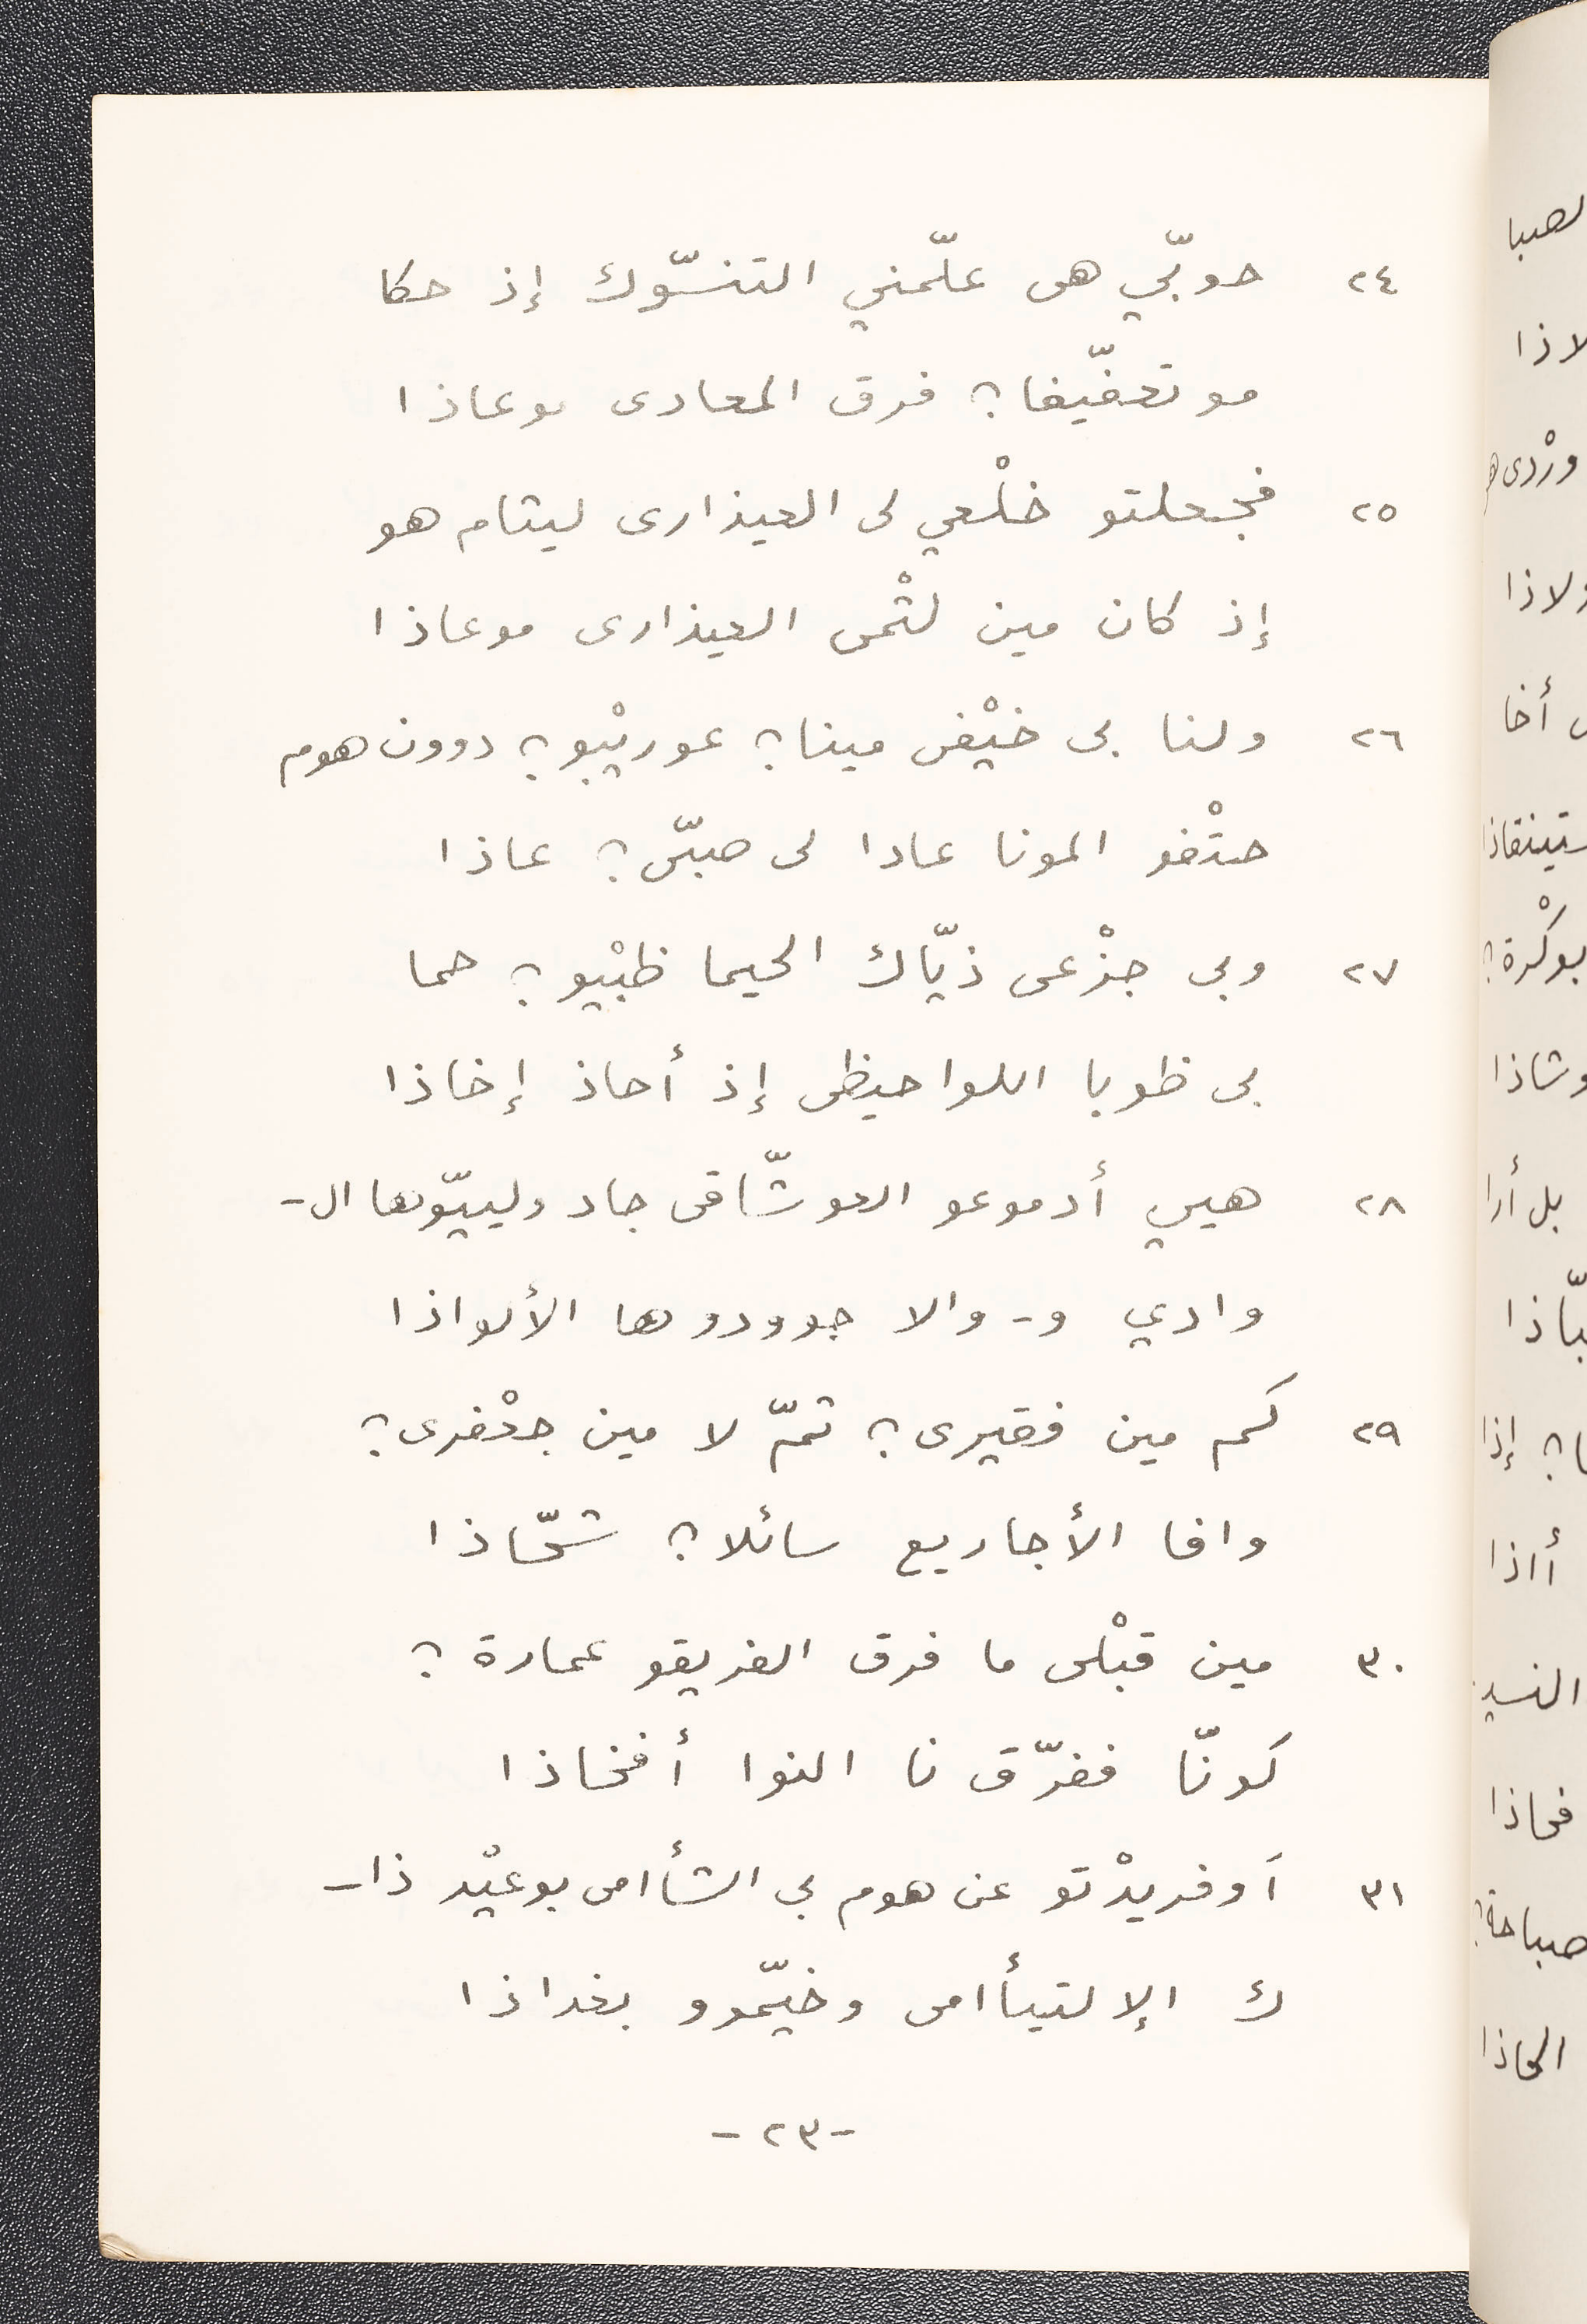 ٢٤ حوبّي هى علّمني التنسّوك إذ حكا
موتعفّيفا؟ فرق المعادى موعاذا
٢٥ فجعلتو خلْعي لى العيذارى ليثام هو
إذ كان مين لثْمى العيذارى موعاذا
٢٦ ولنا بى خيْفى مينا؟ عوريْبو؟ دوون هوم
حتْفو المونا عادا لى صبّى؟ عاذا
٢٧ وبى جزْعى ذيّاك الحيما ظبْيو؟ حما
بى ظوبا اللواحيظى إذ أحاذ إخاذا
٢٨ هيي أدموعو العوشّاقى جاد ولييّوها ال-
وادي و- والا جوودوها الألواذا
٢٩ كم مين فقيرى؟ تمّ لا مين جعْفرى؟
وافا الأجاريع سائلا؟ شحّاذا
٣٠ مين قبْلى ما فرق الفريقو عمارة؟
كونّا ففرّق نا النوا أفخاذا
٣١ أوفريدْتو عن هوم بى الشأامى بوعيْد ذا-
ك الإلتيأامى وخيّموو بغداذا
-٢٣-